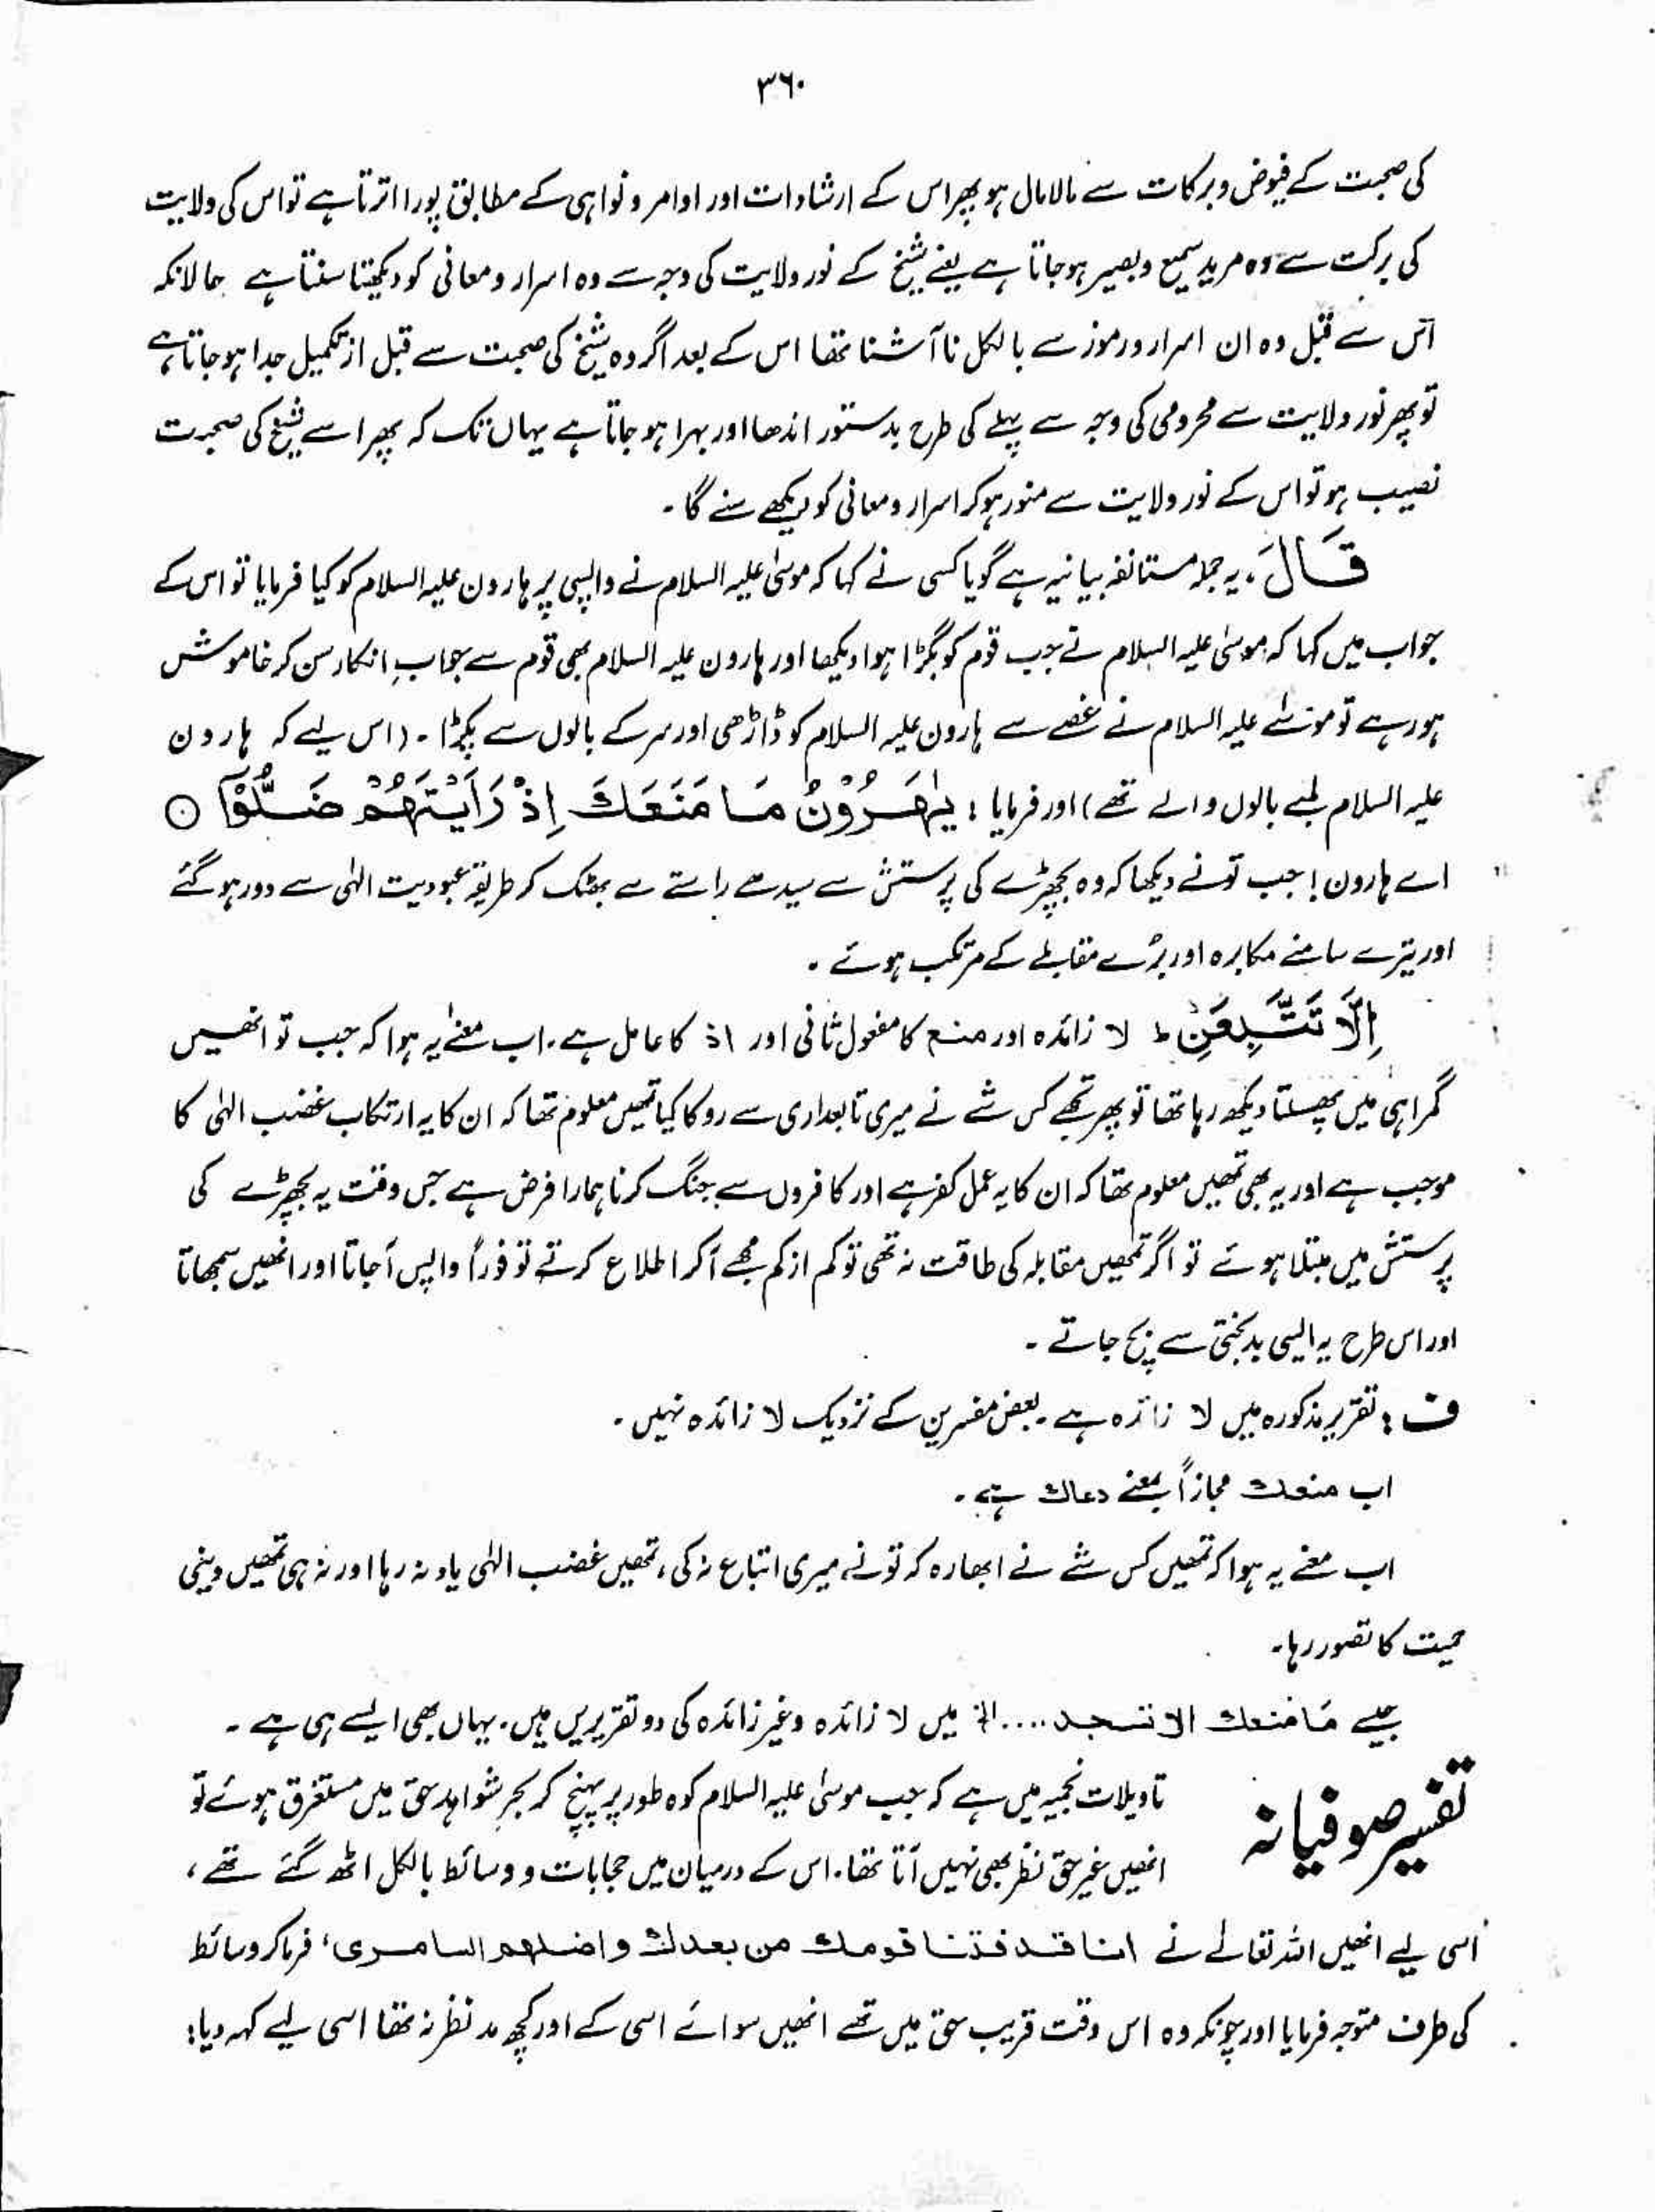 ۳۶۰
کی صحبت کے فیوض و برکات سے مالامال ہو پھر اس کے ارشادات اور اوامر و نواہی کے مطابق پورا اترتا ہے تو اس کی ولایت
کی برکت سے وہ مرید سمیع و بصیر ہو جاتا ہے یعنے شیخ کے نور ولایت کی وجہ سے وہ اسرار و معانی کو دیکھتا سنتا ہے حالانکہ
اس سے قبل وہ ان اسرار و رموز سے بالکل ناآشنا تھا اس کے بعد اگر وہ شیخ کی صحبت سے قبل از تکمیل جدا ہو جاتا ہے
تو پھر نور ولایت سے محرومی کی وجہ سے پہلے کی طرح بدستور اندھا اور بہرا ہو جاتا ہے یہاں تک کہ پھر اسے شیخ کی صحبت
نصیب ہو تو اس کے نور ولایت سے منور ہو کر اسرار و معانی کو دیکھے سنے گا۔
قَالَ، یہ جملہ مستانفہ بیانیہ ہے گویا کسی نے کہا کہ موسیٰ علیہ السلام نے واپسی پر ہارون علیہ السلام کو کیا فرمایا تو اس کے
جواب میں کہا کہ موسیٰ علیہ السلام نے جب قوم کو بگڑا ہوا دیکھا اور ہارون علیہ السلام بھی قوم سے جوابِ انکار سن کر خاموش
ہو رہے تو موسٰے علیہ السلام نے غصے سے ہارون علیہ السلام کو ڈاڑھی اور سر کے بالوں سے پکڑا۔ (اس لیے کہ ہارون
علیہ السلام لمبے بالوں والے تھے) اور فرمایا : یٰهٰرُوْنُ مَا مَنَعَكَ اِذْ رَاَیْتَهُمْ ضَلُّوْۤا ○
اے ہارون ! جب تو نے دیکھا کہ وہ بچھڑے کی پرستش سے سیدھے راستے سے بھٹک کر طریقۂ عبودیت الٰہی سے دور ہو گئے
اور تیرے سامنے مکابرہ اور بڑے مقابلے کے مرتکب ہوئے۔
اِلَّا تَتَّبِعَنِ ط لا زائدہ اور منع کا مفعول ثانی اور اذ کا عامل ہے۔ اب معنے یہ ہوا کہ جب تو انھیں
گمراہی میں پھسلتا دیکھ رہا تھا تو پھر تجھے کس شے نے میری تابعداری سے روکا کیا تمھیں معلوم تھا کہ ان کا یہ ارتکاب غضب الٰہی کا
موجب ہے اور یہ بھی تمھیں معلوم تھا کہ ان کا یہ عمل کفر ہے اور کافروں سے جنگ کرنا ہمارا فرض ہے جس وقت یہ بچھڑے کی
پرستش میں مبتلا ہوئے تو اگر تمھیں مقابلہ کی طاقت نہ تھی تو کم از کم مجھے آکر اطلاع کرتے تو فوراً واپس آجاتا اور انھیں سمجھاتا
اور اس طرح یہ ایسی بدبختی سے بچ جاتے۔
ف : تقریر مذکورہ میں لا زائدہ ہے۔ بعض مفسرین کے نزدیک لا زائدہ نہیں۔
اب منعك مجازاً بمعنے دعاك ہے۔
اب معنے یہ ہوا کہ تمھیں کس شے نے ابھارہ کہ تو نے میری اتباع نہ کی، تمھیں غضب الٰہی یاد نہ رہا اور نہ ہی تمھیں دینی
حمیت کا تصور رہا۔
جیسے مَا منعك الا تسجد .... الخ میں لا زائدہ و غیر زائدہ کی دو تقریریں ہیں۔ یہاں بھی ایسے ہی ہے۔
تفسیر صوفیانہ
تاویلات نجمیہ میں ہے کہ جب موسیٰ علیہ السلام کوہ طور پر پہنچ کر بحرِ شواہد حق میں مستغرق ہوئے تو
انھیں غیر حق نظر بھی نہیں آتا تھا۔ اس کے درمیان میں حجابات و وسائط بالکل اٹھ گئے تھے،
اسی لیے انھیں اللہ تعالےٰ نے انا قد فتنا قومك من بعدك و اضلهم السامری، فرما کر وسائط
کی طرف متوجہ فرمایا اور چونکہ وہ اس وقت قریب حق میں تھے انھیں سوائے اسی کے اور کچھ مد نظر نہ تھا اسی لیے کہہ دیا: